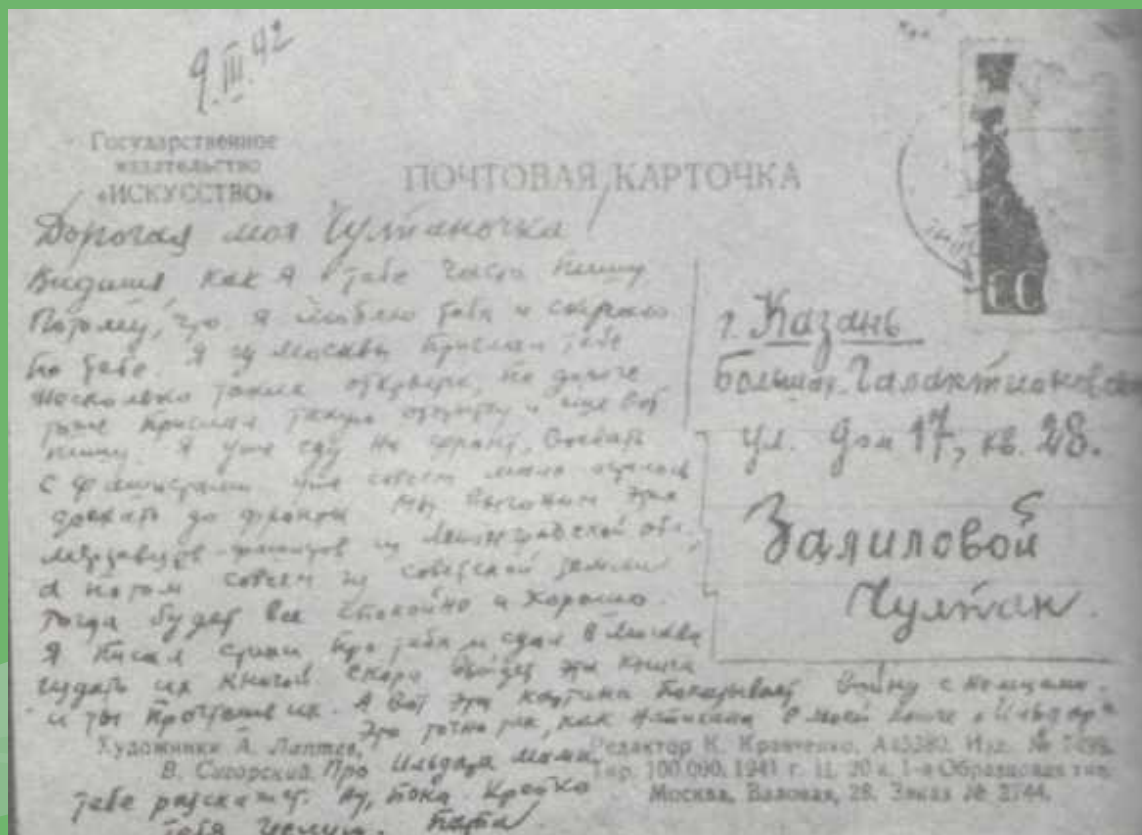 9.III.42
Государственное
издательство
«ИСКУССТВО»
ПОЧТОВАЯ КАРТОЧКА
Дорогая моя Чулпаночка
Видишь, как я тебе часто пишу
Потому, что я люблю тебя и скучаю
по тебе. Я из Москвы прислал тебе
несколько таких открыток, по дороге
тоже прислал такую открытку и еще вот
пишу. Я уже еду на фронт, воевать
с фашистами уже совсем мало осталось
доехать до фронта Мы выгоним этих
мерзавцев-фашистов из Ленинградской обл.,
а потом совсем из советской земли
Тогда будет все спокойно и хорошо.
Я писал стихи про тебя и сдал в Москве
издать их книгой. Скоро выйдет эта книга
и ты прочтешь их. А вот эта картина показывает войну с немцами.
Это точно так, как написано в моей книге „Ильдар"
Художники А. Лаптев,
В. Сигорский
Про Ильдара мама
тебе расскажет. Ну, пока Крепко
тебя целую. Папа
г. Казань
Большая Галактионовская
ул. дом 17, кв. 28.
Залиловой
Чулпан.
Редактор К. Кравченко,
Тир. 100.000. 1941 г. Ц. 20 к. 1-я Образцовая тип.
Москва, Валовая, 28. Заказ № 2744.